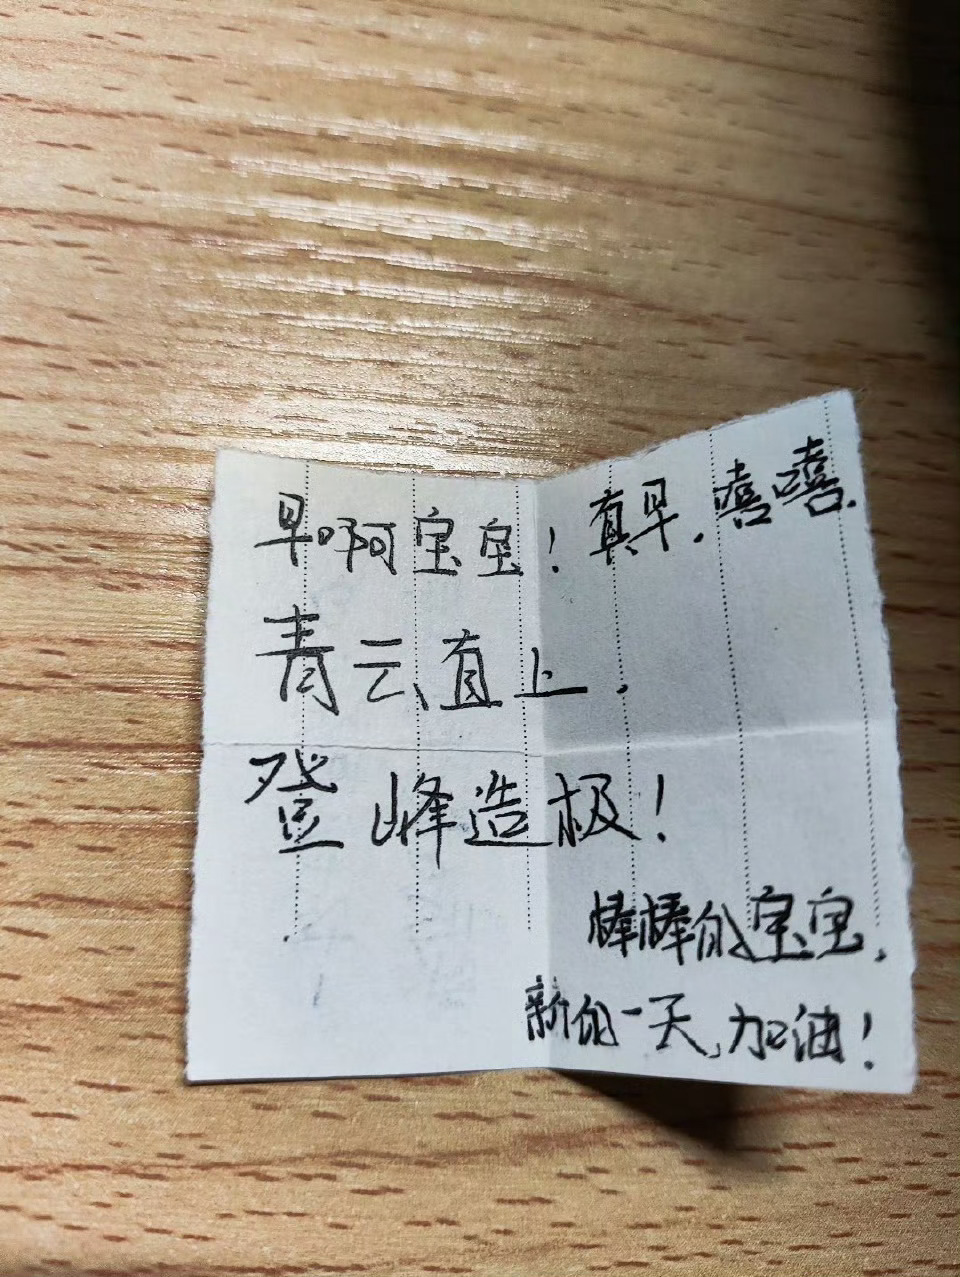 早啊宝宝！真早.嘻嘻.
青云直上.
登峰造极！
棒棒的宝宝.
新的一天,加油！